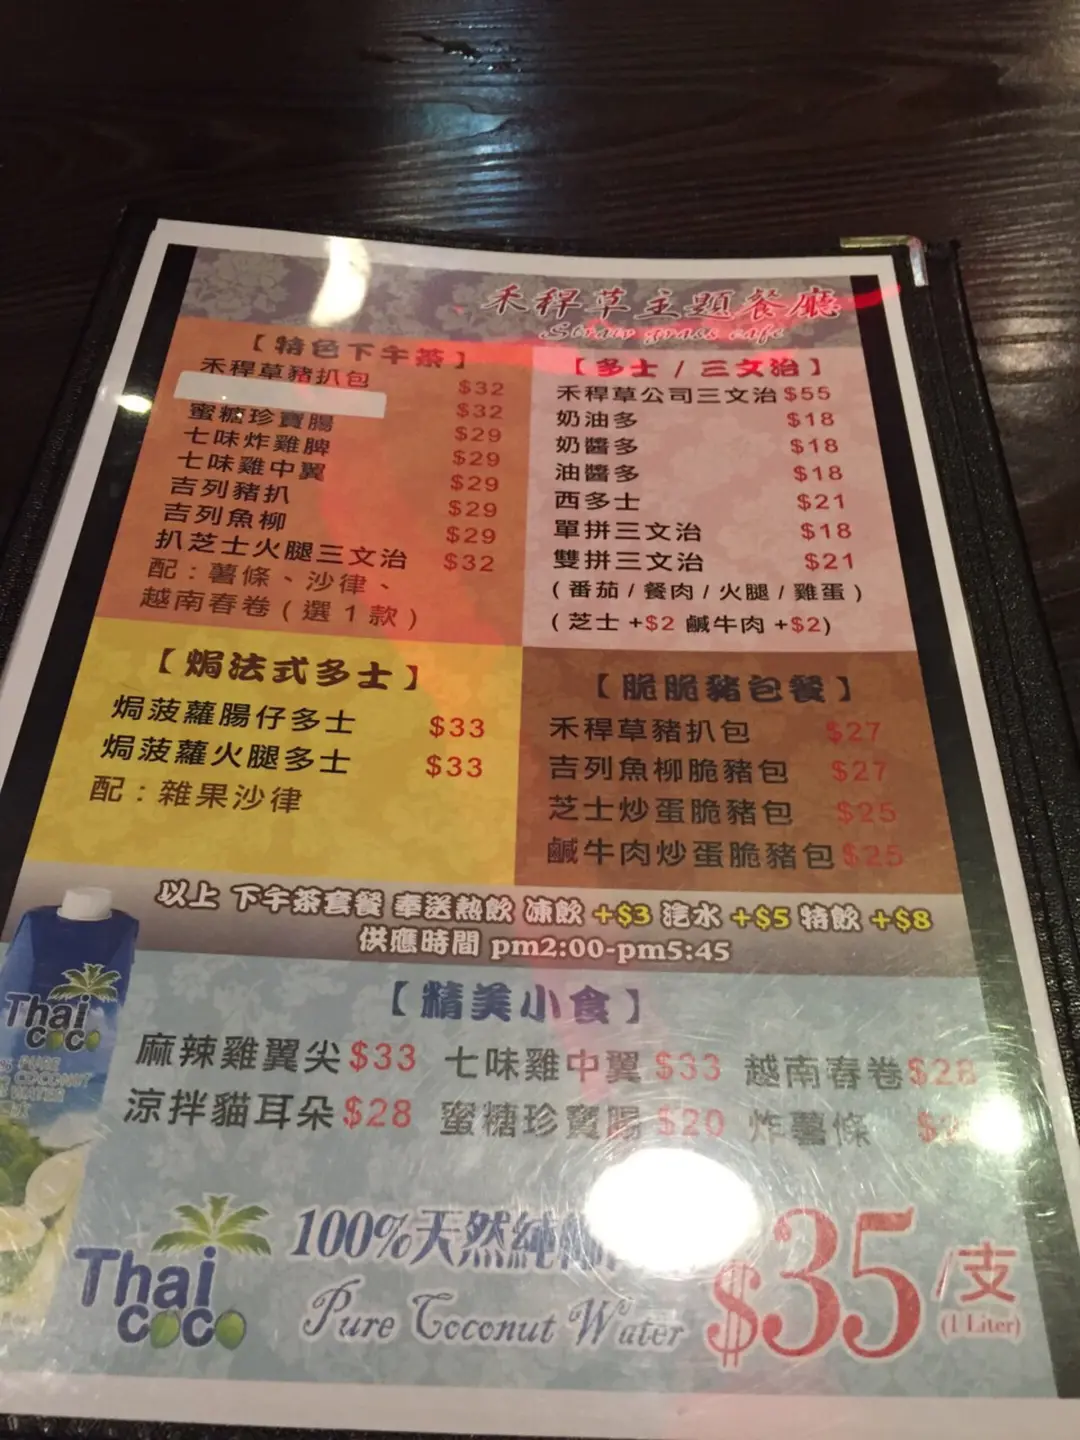 禾稈草主題餐廳
Straw grass cafe
【特色下午茶】
禾稈草豬扒包 $32
$32
蜜糖珍寶腸 $29
七味炸雞脾 $29
七味雞中翼 $29
吉列豬扒 $29
吉列魚柳 $29
扒芝士火腿三文治 $32
配：薯條、沙律、
越南春卷(選1款)
【多士/三文治】
禾稈草公司三文治 $55
奶油多 $18
奶醬多 $18
油醬多 $18
西多士 $21
單拼三文治 $18
雙拼三文治 $21
(番茄/餐肉/火腿/雞蛋)
(芝士+$2 鹹牛肉+$2)
【焗法式多士】
焗菠蘿腸仔多士 $33
焗菠蘿火腿多士 $33
配：雜果沙律
【脆脆豬包餐】
禾稈草豬扒包 $27
吉列魚柳脆豬包 $27
芝士炒蛋脆豬包 $25
鹹牛肉炒蛋脆豬包 $25
以上 下午茶套餐 奉送熱飲 凍飲+$3 汽水+$5 特飲+$8
供應時間 pm2:00-pm5:45
【精美小食】
麻辣雞翼尖 $33 七味雞中翼 $33 越南春卷 $28
涼拌貓耳朵 $28 蜜糖珍寶腸 $20 炸薯條
Thai
coco
PURE
COCONUT
WATER
Thai
coco
100%天然純
Pure Coconut Water
$35/支
(1 Liter)